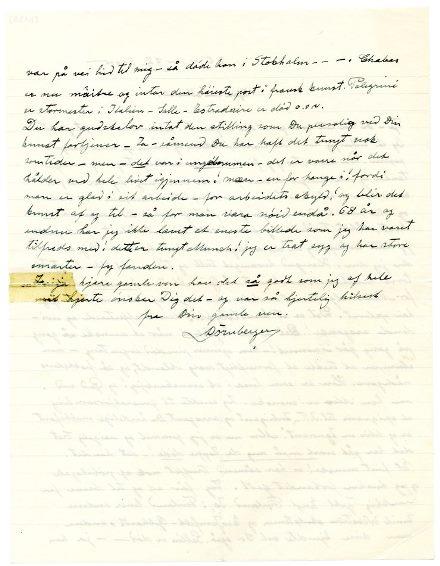 var på vei hid til mig - så døde han i Stokholm - - - . Chabas
er nu maître og inter den høieste post i fransk kunst. Pelegrini
er stormester i Italien - Selle - Estradeire er død o.s.v.
Du har gudskelov intat den stilling som Du personlig ved Din
kunst fortjener - Ja - såmend Du har haft det tungt nok
somtider - men - det var i ungdommen - det er værre når det
holder ved hele livet igjennem: men - en får hænge i: fordi
man er glad i sit arbeide - for arbeidets skyld: og blir det
kunst af og til - så får man være nøid endda. 68 år og
endnu har jeg ikke lavet et eneste billede som jeg har været
tilfreds med: det er tungt Munch: jeg er træt syg og har store
smærter - fy fanden.
kjære gamle ven hav det så godt som jeg af hele
mit hjerte ønsker Dig det - og vær så hjertelig hilset
fra Din gamle ven.
Dörnberger